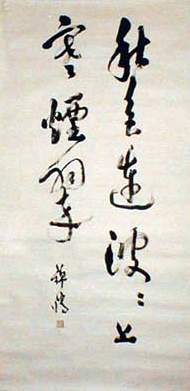 秋色連波波上
寒煙翠